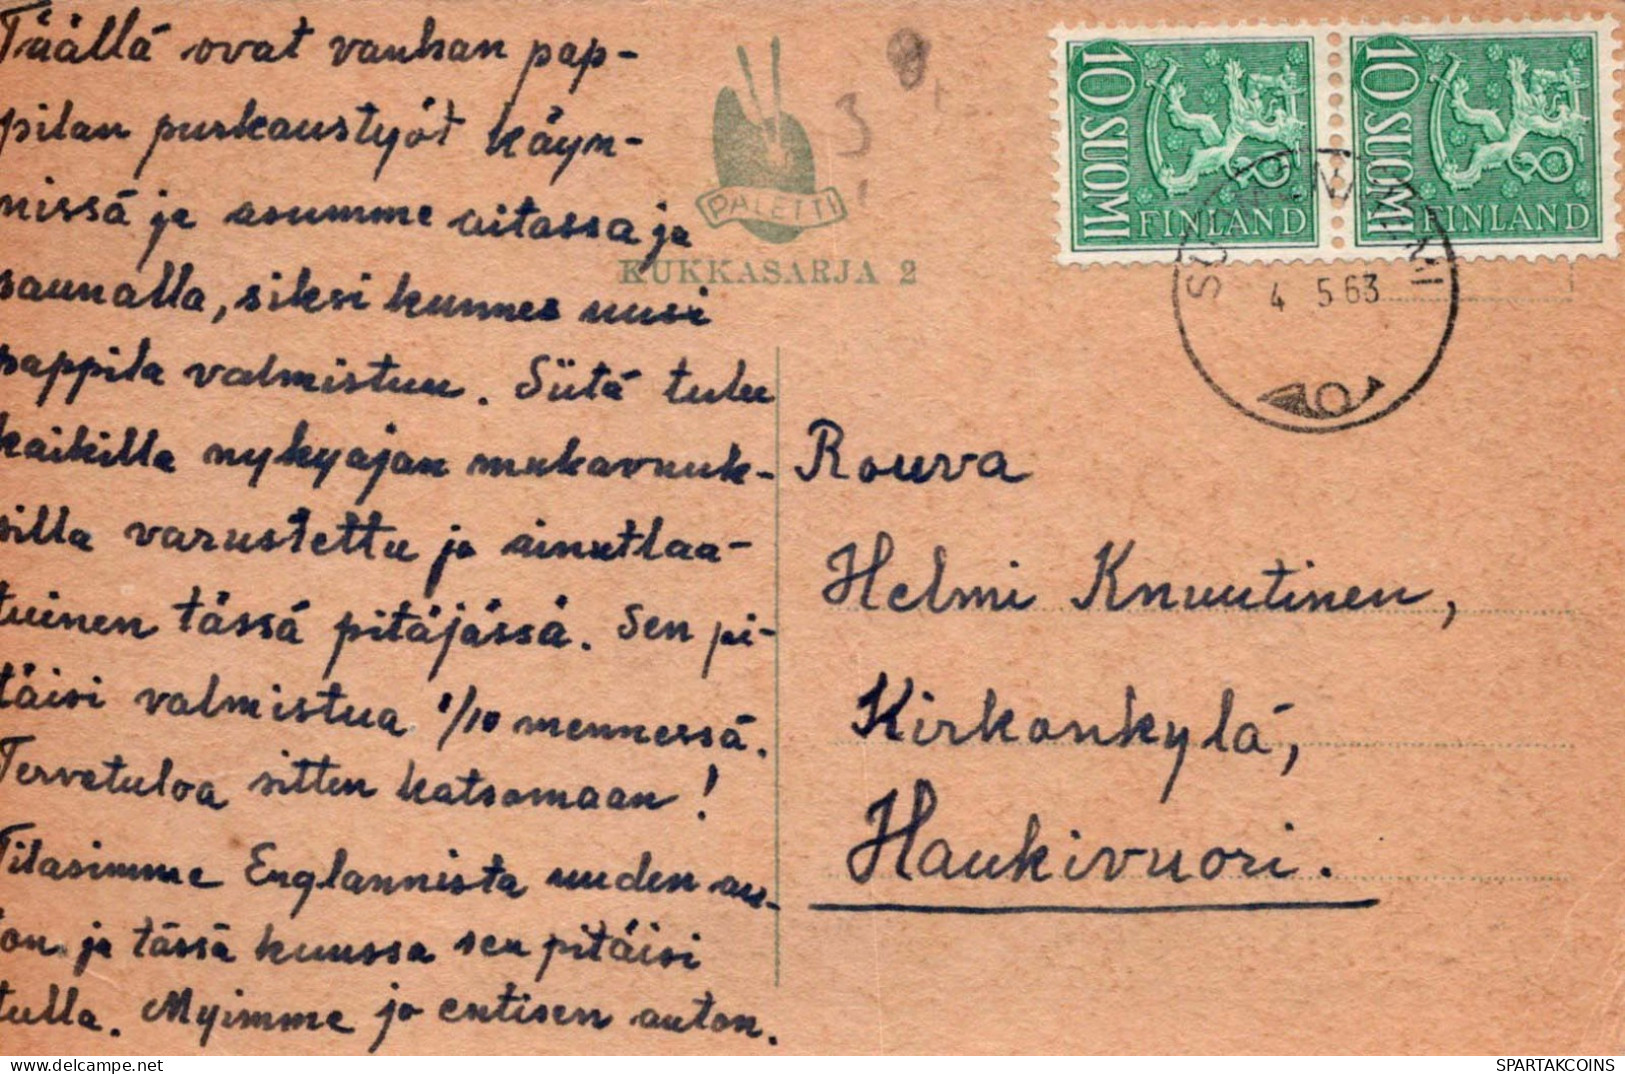 Täällä ovat vanhan pap-
pilan purkaustyöt käyn-
nissä ja asumme aitassa ja
saunalla, siksi kunnes uusi
pappila valmistuu. Siitä tulee
kaikilla nykyajan mukavuuk-
silla varustettu ja ainutlaa-
tuinen tässä pitäjässä. Sen pi-
täisi valmistua 1/10 mennessä.
Tervetuloa sitten katsomaan!
Tilasimme Englannista uuden au-
ton ja tässä kuussa sen pitäisi
tulla. Myimme jo entisen auton.
PALETTI
KUKKASARJA 2
3
10 SUOMI
FINLAND
10 SUOMI
FINLAND
4 5 63
Rouva
Helmi Knuutinen,
Kirkonkylä,
Haukivuori.
SPARTAKCOINS